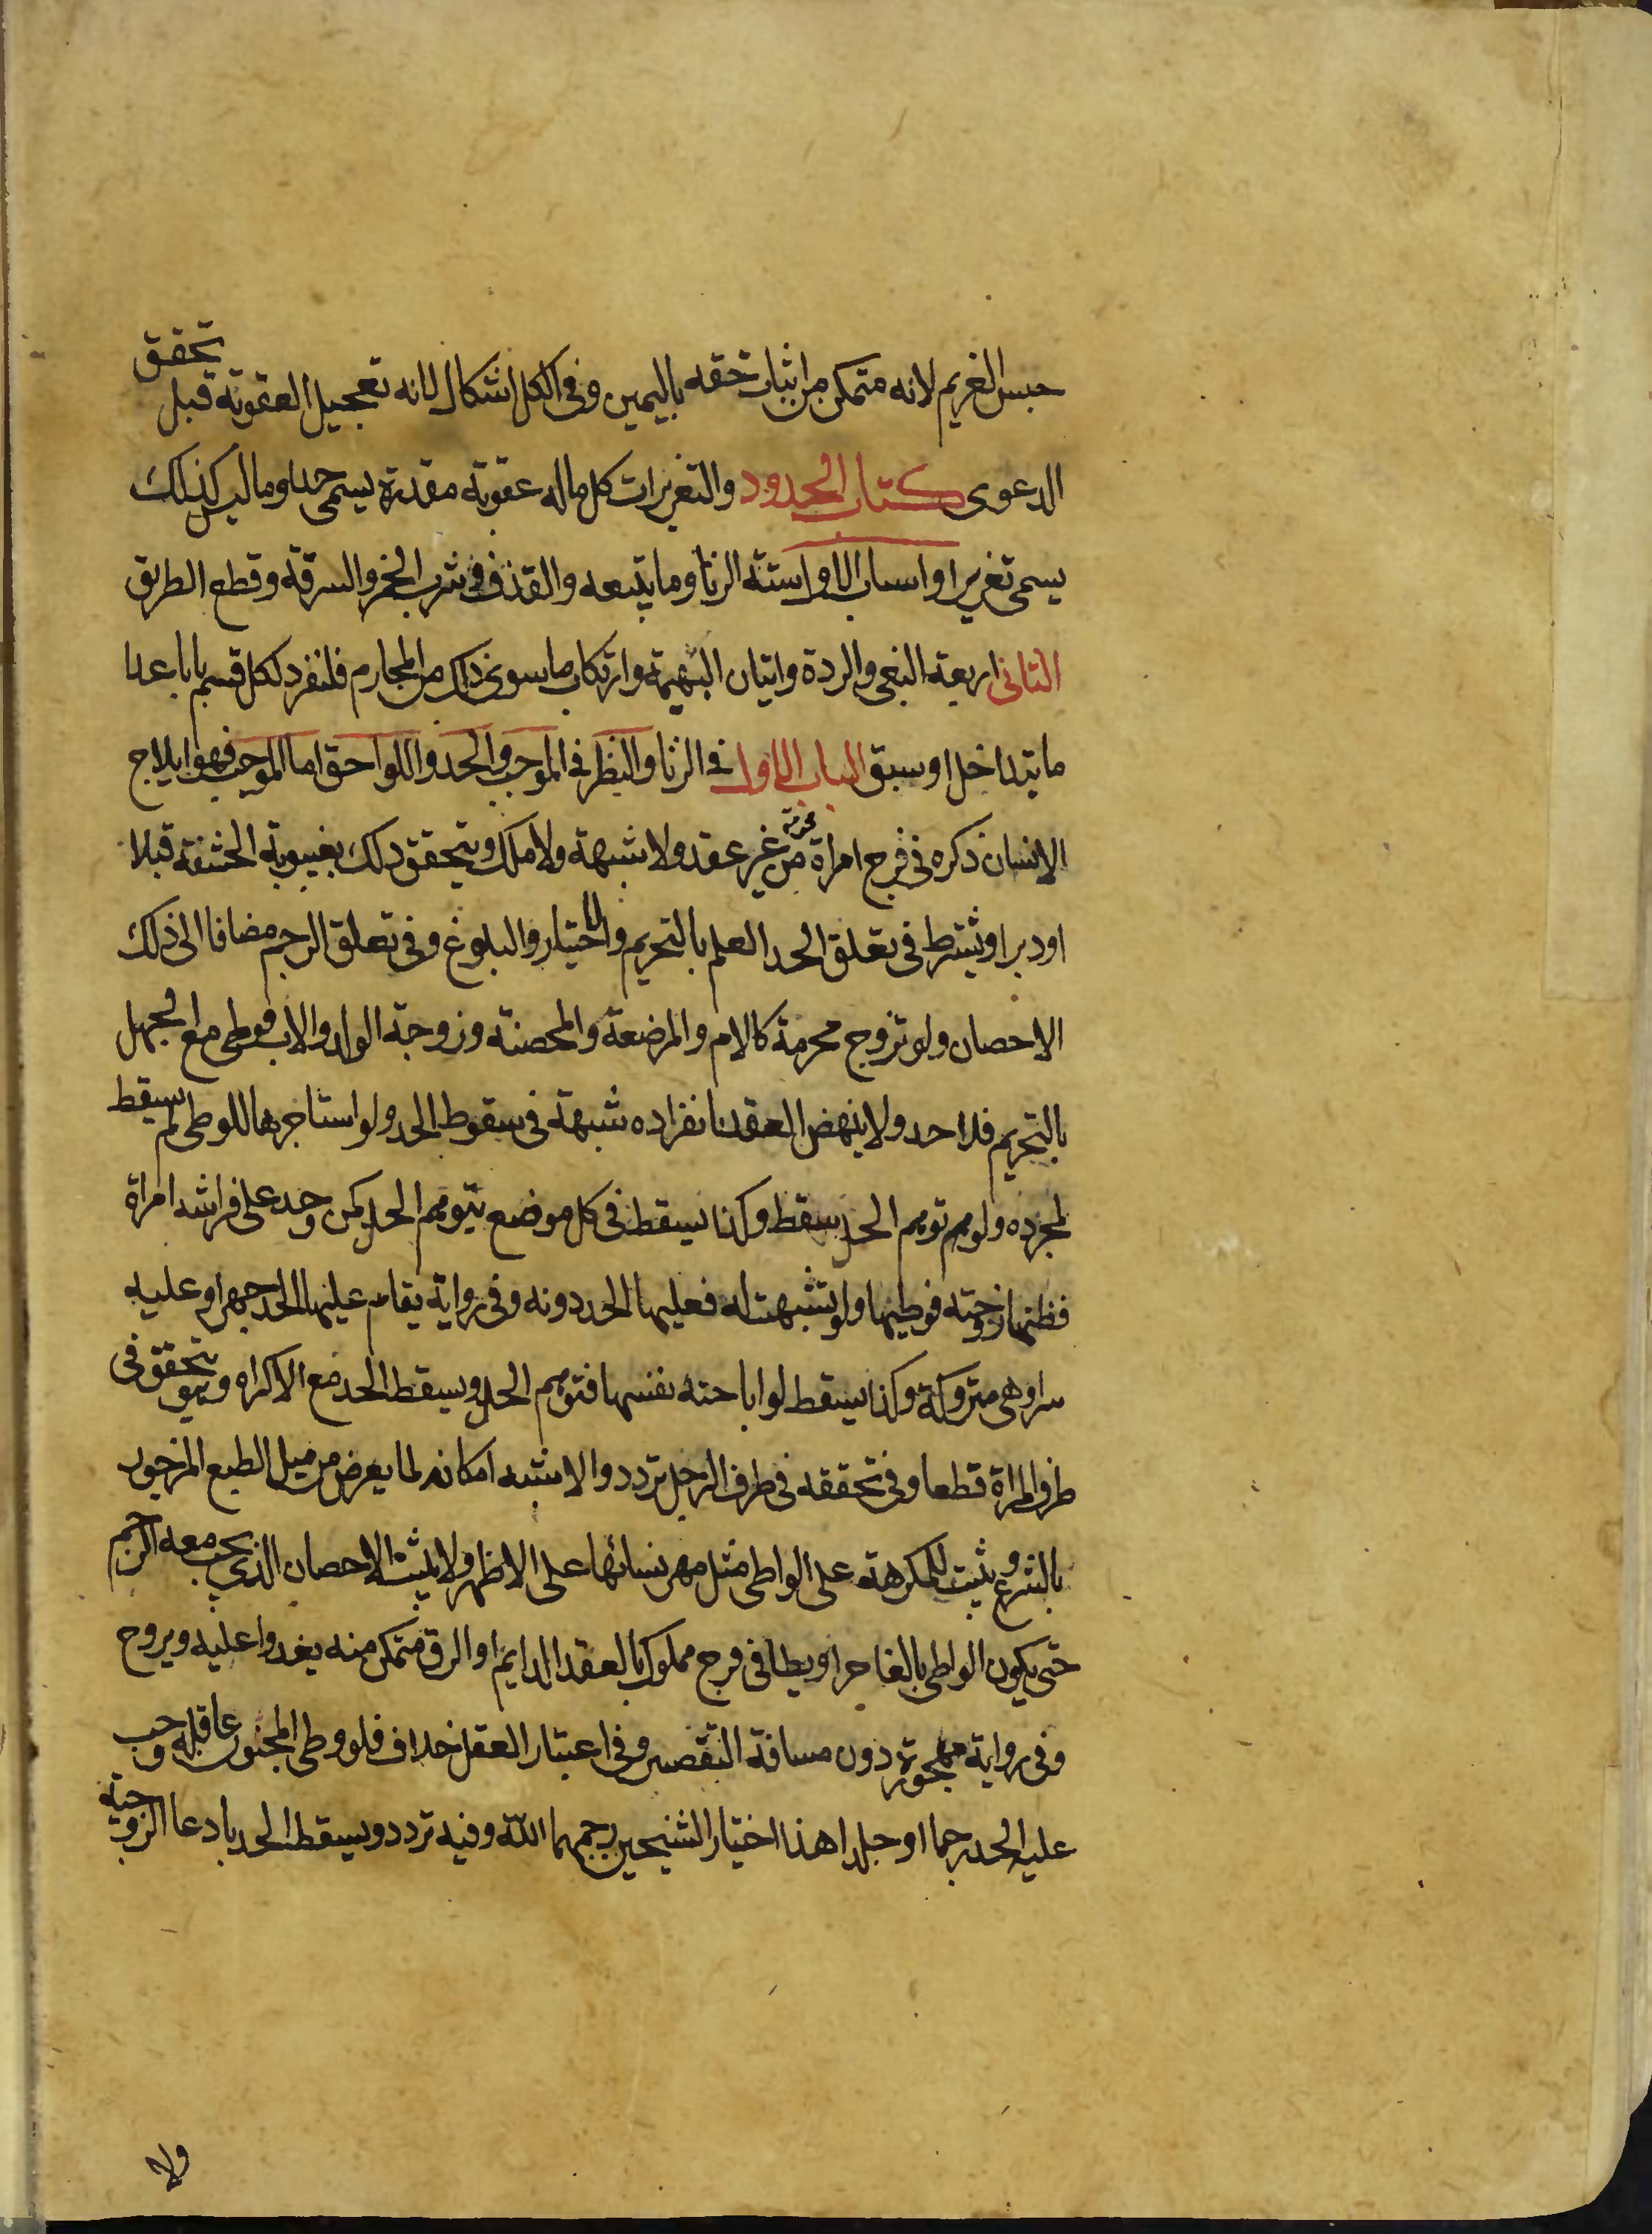 حبس الغريم لانه متمكن من اثبات حقه باليمين وفى الكل اشكال لانه تعجيل العقوبة قبل تحقق
الدعوى كتاب الحدود والتعزيرات كل ماله عقوبة مقدرة يسمى حدا وما ليس كذلك
يسمى تعزيرا واسباب الاول ستة الزنا وما يتبعه والقذف وشرب الخمر والسرقة وقطع الطريق
الثانى اربعة البغى والردة واتيان البهيمة وارتكاب ما سوى ذلك من المحارم فلنفرد لكل قسم بابا عدا
ما يتداخل او سبق الباب الاول فى الزنا والنظر فى الموجب والحد واللواحق اما الموجب فهو ايلاج
الانسان ذكره فى فرج امراة محرمة من غير عقد ولا شبهة ولا ملك ويتحقق ذلك بغيبوبة الحشفة قبلا
او دبرا ويشترط فى تعلق الحد العلم بالتحريم والاختيار والبلوغ وفى تعلق الرجم مضافا الى ذلك
الاحصان ولو تزوج محرمة كالام والمرضعة والمحصنة وزوجة الولد والاب فوطى مع الجهل
بالتحريم فلا حد ولا ينهض العقد بانفراده شبهة فى سقوط الحد ولو استاجرها للوطى لم يسقط
لمجرده ولو توهم الحل سقط وكذا يسقط فى كل موضع يتوهم الحل كمن وجد على فراشه امراة
فظنها زوجته فوطيها ولو تشبهت له فعليها الحد دونه وفى رواية يقام عليها الحد جهرا وعليه
سرا وهى متروكة وكذا يسقط لو اباحته نفسها فتوهم الحل ويسقط الحد مع الاكراه وهو يتحقق فى
طرف المراة قطعا وفى تحققه فى طرف الرجل تردد والاشبه امكانه لما يعرض من ميل الطبع المزجور
بالشرع ويثبت للمكرهة على الواطى مثل مهر نسائها على الاظهر ولا يثبت الاحصان الذى يجب معه الرجم
حتى يكون الواطى بالغا حرا ويطا فى فرج مملوك بالعقد الدايم او الرق متمكن منه يغدوا عليه ويروح
وفى رواية مهجورة دون مسافة التقصير وفى اعتبار العقل خلاف فلو وطى المجنون عاقلة وجب
عليه الحد رجما او جلدا هذا اختيار الشيخين رحمهما الله وفيه تردد ويسقط الحد بادعا الزوجية
ولا